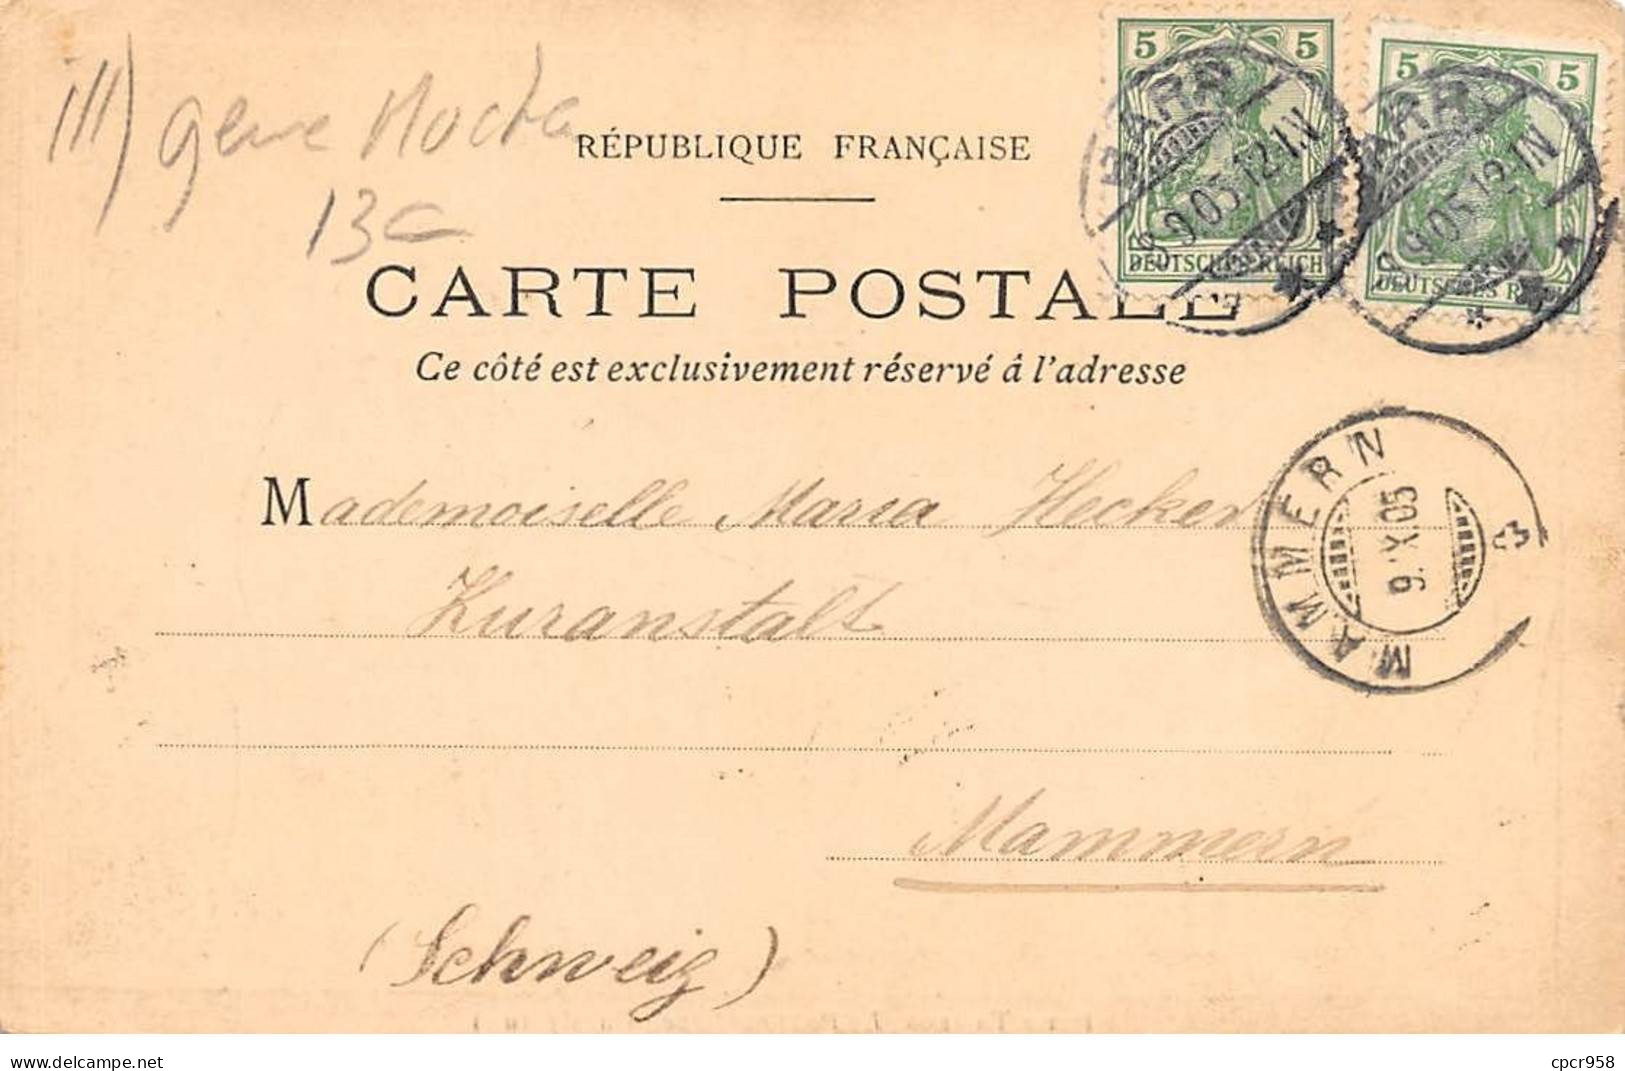 III) gene Mocka
13c
RÉPUBLIQUE FRANÇAISE
CARTE POSTALE
Ce côté est exclusivement réservé â l'adresse
5 5
DEUTSCHES REICH
BARR
9.05.12-1N
5 5
DEUTSCHES REICH
BARR
9.05.12-1N
MAMMERN
9.X.05
Mademoiselle Maria Hecker
Kuranstalt
Mammern
(Schweiz)
delcampe.net
cpcr958